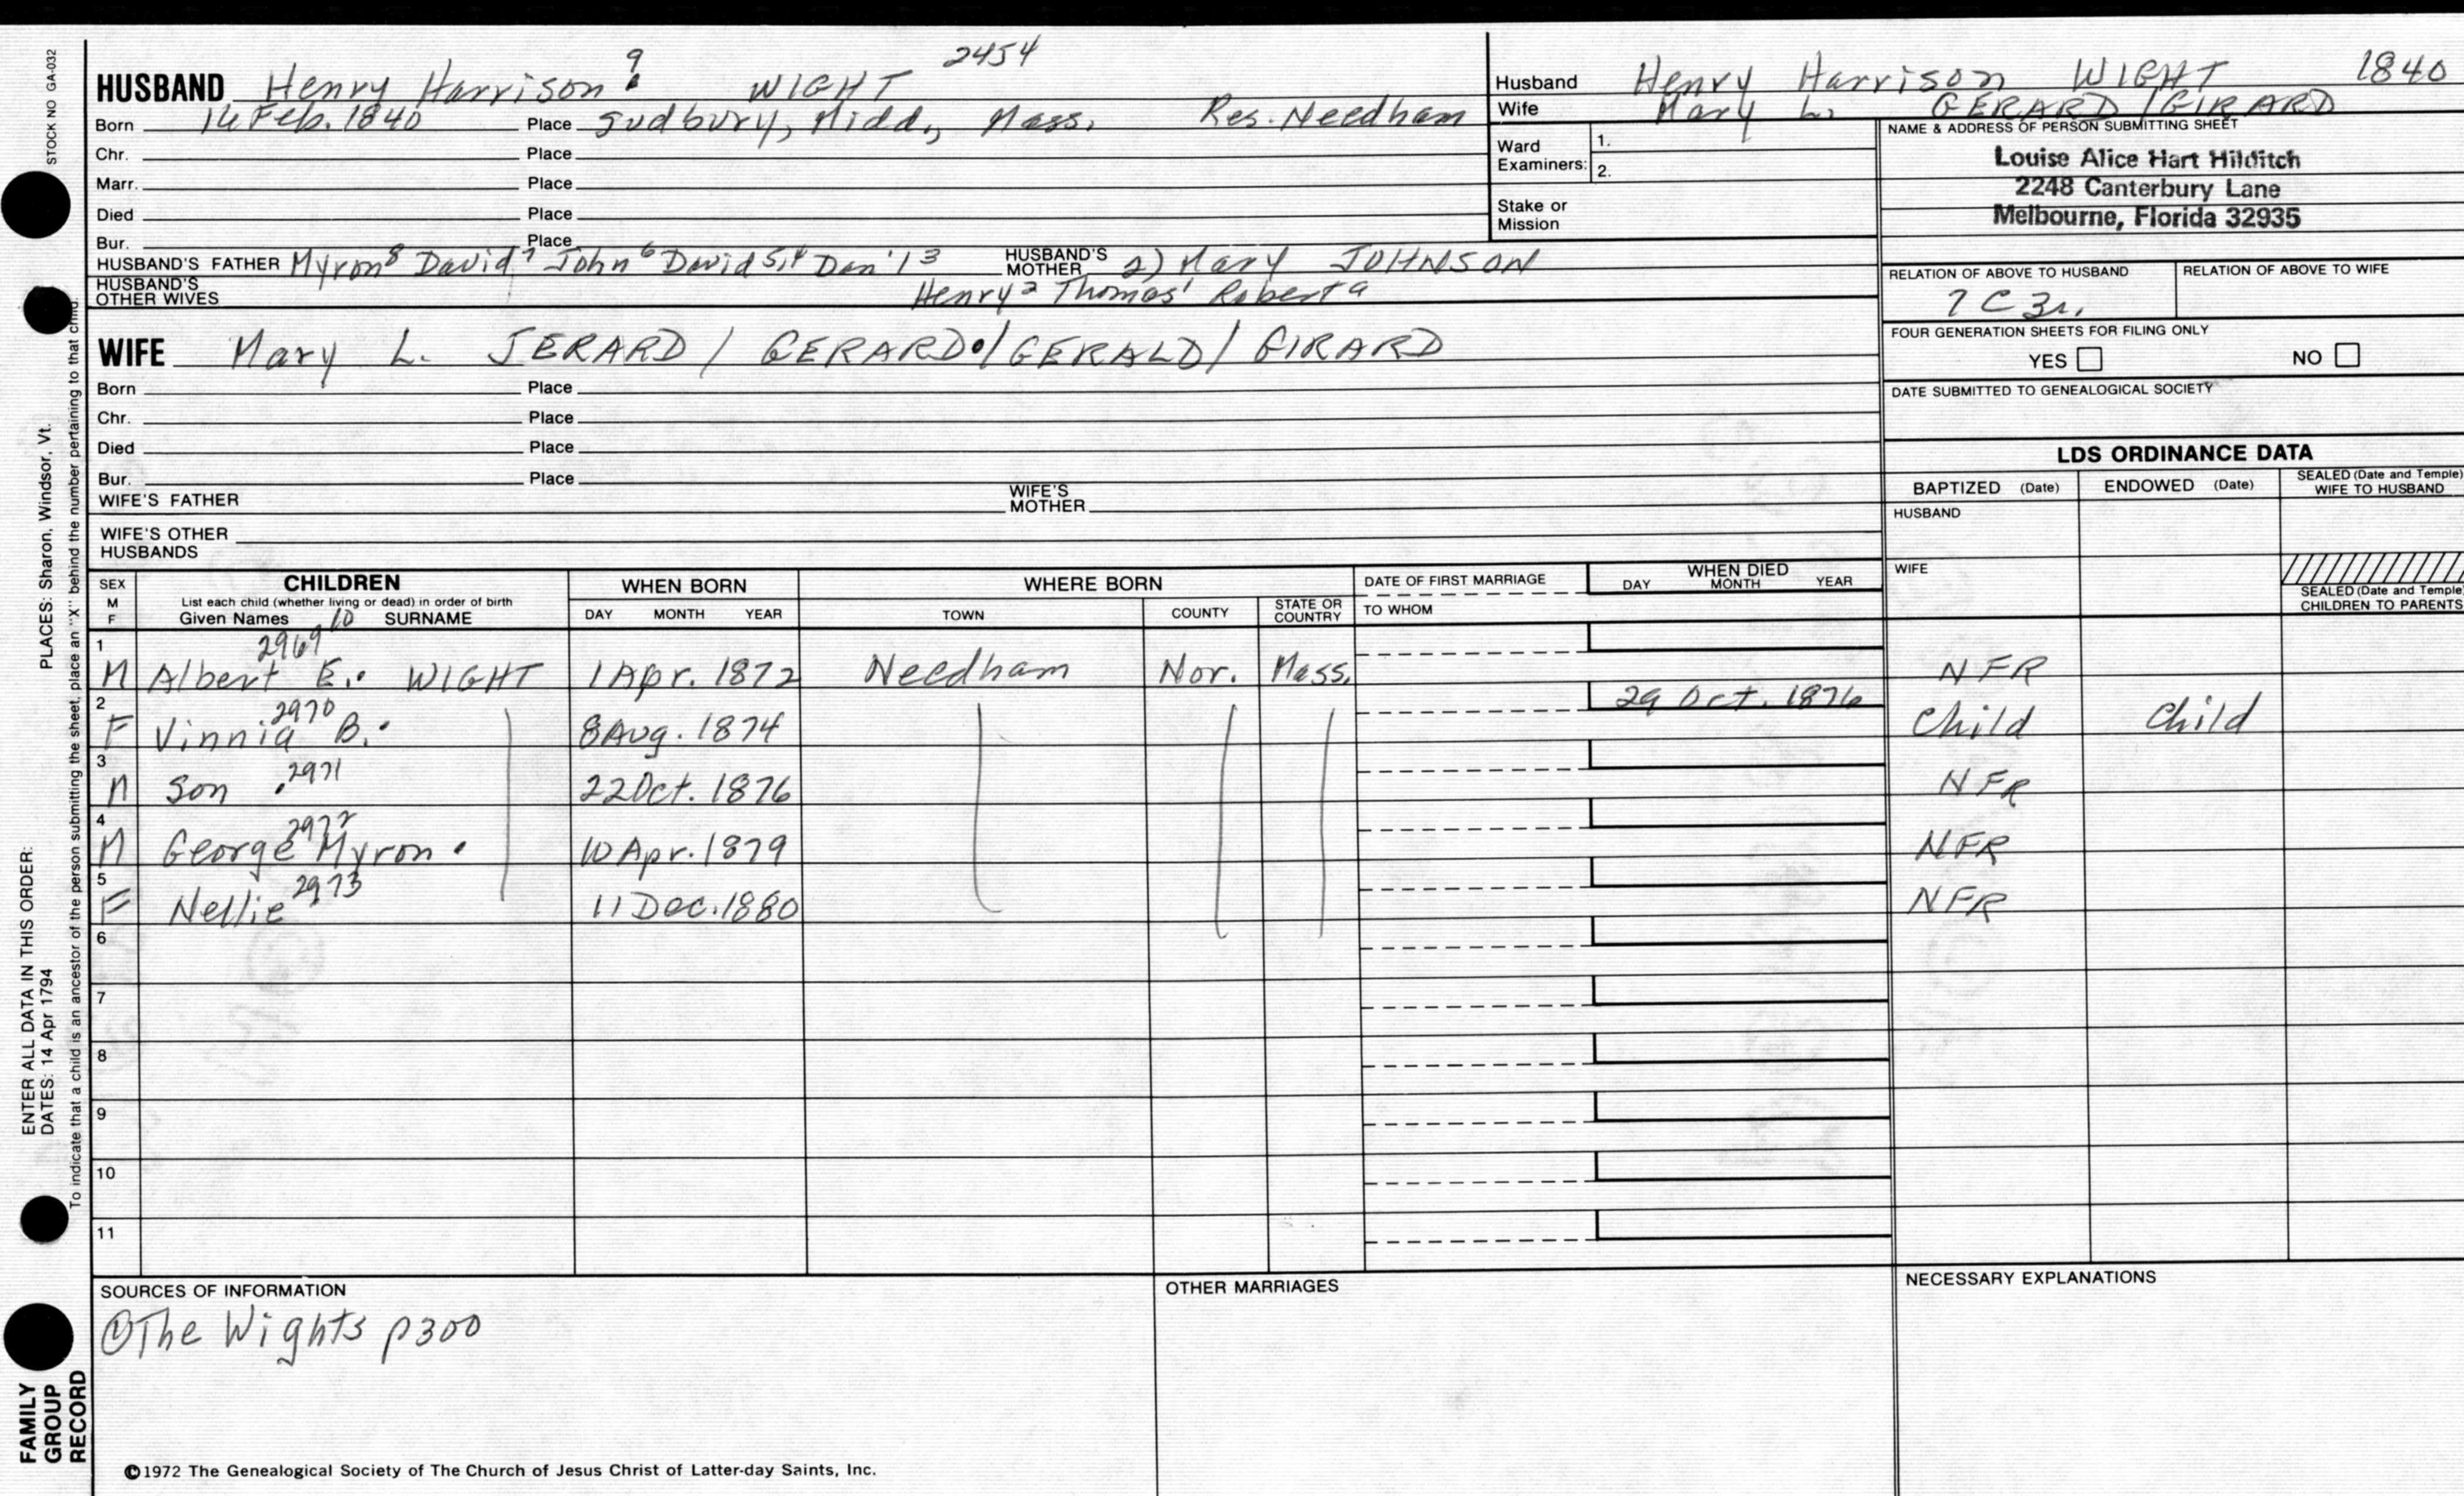 2454
HUSBAND Henry Harrison 9 WIGHT
Born 14 Feb. 1840 Place Sudbury, Midd., Mass. Res. Needham
Chr. Place
Marr. Place
Died Place
Bur. Place
HUSBAND'S FATHER Myron 8 David 7 John 6 David 5,4 Dan'l 3 HUSBAND'S MOTHER 2) Mary JOHNSON
HUSBAND'S OTHER WIVES Henry 2 Thomas 1 Robert a
WIFE Mary L. JERARD / GERARD / GERALD / GIRARD
Born Place
Chr. Place
Died Place
Bur. Place
WIFE'S FATHER WIFE'S MOTHER
WIFE'S OTHER HUSBANDS
Husband Henry Harrison WIGHT 1840
Wife Mary L. GERARD / GIRARD
Ward Examiners: 1.
2.
Stake or Mission
NAME & ADDRESS OF PERSON SUBMITTING SHEET
Louise Alice Hart Hilditch
2248 Canterbury Lane
Melbourne, Florida 32935
RELATION OF ABOVE TO HUSBAND RELATION OF ABOVE TO WIFE
7 C 3r.
FOUR GENERATION SHEETS FOR FILING ONLY
YES NO
DATE SUBMITTED TO GENEALOGICAL SOCIETY
LDS ORDINANCE DATA
BAPTIZED (Date) ENDOWED (Date) SEALED (Date and Temple) WIFE TO HUSBAND
HUSBAND
WIFE
SEALED (Date and Temple) CHILDREN TO PARENTS
SEX M F CHILDREN WHEN BORN WHERE BORN DATE OF FIRST MARRIAGE WHEN DIED
List each child (whether living or dead) in order of birth
Given Names 10 SURNAME DAY MONTH YEAR TOWN COUNTY STATE OR COUNTRY TO WHOM DAY MONTH YEAR
1 M Albert E. 2969 WIGHT 1 Apr. 1872 Needham Nor. Mass. NFR
2 F Vinnia B. 2970 8 Aug. 1874 29 Oct. 1876 Child Child
3 M Son 2971 22 Oct. 1876 NFR
4 M George Myron 2972 10 Apr. 1879 NFR
5 F Nellie 2973 11 Dec. 1880 NFR
6
7
8
9
10
11
SOURCES OF INFORMATION OTHER MARRIAGES NECESSARY EXPLANATIONS
① The Wights p300
©1972 The Genealogical Society of The Church of Jesus Christ of Latter-day Saints, Inc.
STOCK NO GA-032
PLACES: Sharon, Windsor, Vt.
To indicate that a child is an ancestor of the person submitting the sheet, place an "X" behind the number pertaining to that child.
ENTER ALL DATA IN THIS ORDER:
DATES: 14 Apr 1794
FAMILY
GROUP
RECORD